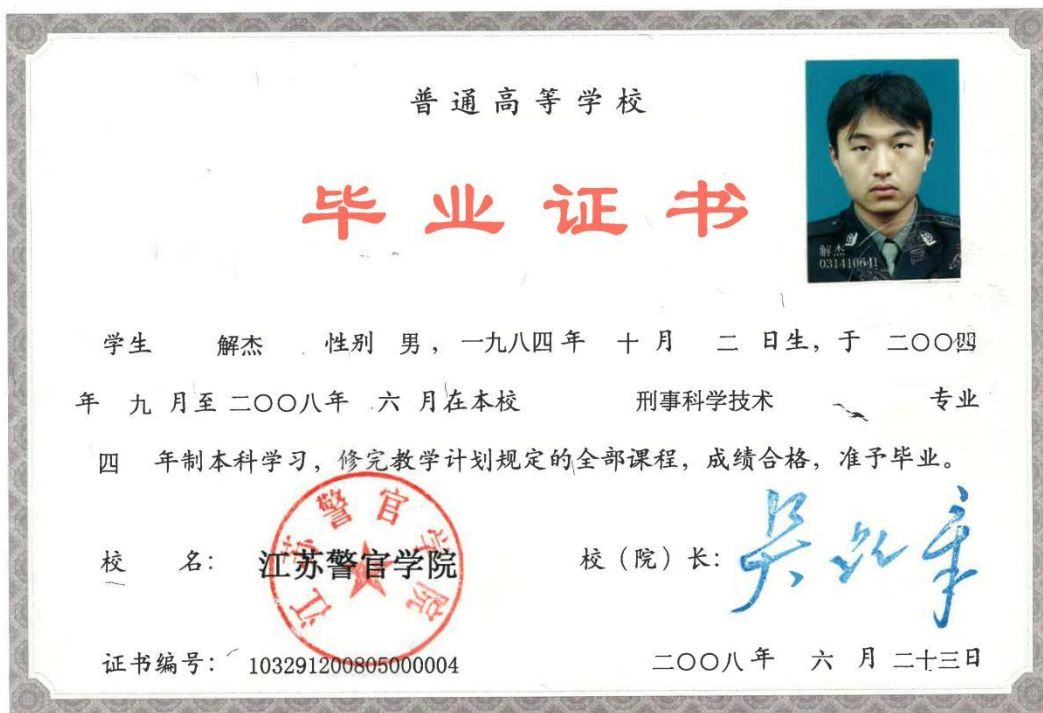 普通高等学校
毕业证书
解杰
031410641
学生 解杰 性别 男，一九八四年 十月 二 日生，于 二〇〇四
年 九 月至二〇〇八年 六 月在本校 刑事科学技术 专业
四 年制本科学习，修完教学计划规定的全部课程，成绩合格，准予毕业。
校 名：江苏警官学院 校（院）长：
江苏警官学院
证书编号：103291200805000004 二〇〇八年 六 月 二十三日